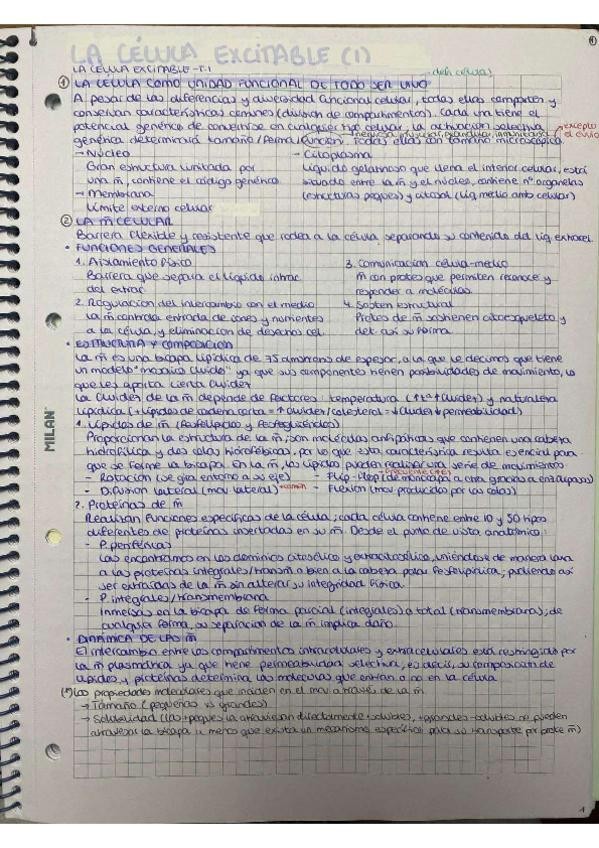 LA CÉLULA EXCITABLE (1)
LA CÉLULA EXCITABLE - T.1
① LA CÉLULA COMO UNIDAD FUNCIONAL DE TODO SER VIVO
A pesar de las diferencias y diversidad funcional celular, todas ellas comparten y
conservan características comunes (división de compartimentos). Cada una tiene el
potencial genérico de convertirse en cualquier tipo celular, la activación selectiva
genética determinará tamaño/forma/función. Todas ellas con tamaño microscópico
excepto el óvulo
→ Núcleo
Gran estructura limitada por
una m̄, contiene el código genético
→ Membrana
Límite externo celular
→ Citoplasma
Líquido gelatinoso que llena el interior celular, está
situado entre la m̄ y el núcleo, contiene nº organelas
(estructuras peques) y citosol (líq medio amb celular)
② LA m̄ CELULAR
Barrera flexible y resistente que rodea a la célula separando su contenido del líq extracel.
• FUNCIONES GENERALES
1. Aislamiento físico
Barrera que separa el líquido intrac.
del extrac.
2. Regulación del intercambio con el medio
La m̄ controla entrada de iones y nutrientes
a la célula, y eliminación de desechos cel.
3. Comunicación célula-medio
m̄ con protes que permiten reconocer y
responder a moléculas.
4. Sostén estructural
Protes de m̄ sostienen citoesqueleto y
det. así su forma.
• ESTRUCTURA Y COMPOSICIÓN
La m̄ es una bicapa lipídica de 75 amstrons de espesor, a la que le decimos que tiene
un modelo "mosaico fluido" ya que sus componentes tienen posibilidades de movimiento, lo
que les aporta cierta fluidez.
La fluidez de la m̄ depende de factores: temperatura (↑tª↑fluidez) y naturaleza
lipídica (+lípidos de cadena corta = ↑fluidez/colesterol = ↓fluidez↓permeabilidad)
1. Lípidos de m̄ (fosfolípidos y fosfoglicéridos)
Proporcionan la estructura de la m̄, son moléculas anfipáticas que contienen una cabeza
hidrofílica y dos colas hidrofóbicas, por lo que esta característica resulta esencial para
que se forme la bicapa. En la m̄, los lípidos pueden realizar una serie de movimientos:
- Rotación (se gira entorno a su eje)
- Flip-Flop (de monocapa a otra gracias a enzimas)
- Difusión lateral (mov lateral) +común
- Flexión (mov producidos por las colas)
2. Proteínas de m̄
Realizan funciones específicas de la célula; cada célula contiene entre 10 y 50 tipos
diferentes de proteínas insertadas en su m̄. Desde el punto de vista anatómico:
- P. periféricas
Las encontramos en los dominios citosólico y extracitosólico, uniéndose de manera laxa
a las proteínas integrales/transm o bien a la cabeza polar fosfolipídica, pudiendo así
ser extraídas de la m̄ sin alterar su integridad física.
- P. integrales/transmembrana
Inmersas en la bicapa de forma parcial (integrales) o total (transmembrana), de
cualquier forma, su separación de la m̄ implica daño.
• DINÁMICA DE LAS m̄
El intercambio entre los compartimentos intracelulares y extracelulares está restringido por
la m̄ plasmática ya que tiene permeabilidad selectiva, es decir, su composición de
lípidos y proteínas determina las moléculas que entran o no en la célula.
(*) Las propiedades moleculares que inciden en el mov a través de la m̄
→ Tamaño (pequeños vs grandes)
→ Solubilidad (las +peques la atraviesan directamente +solubles, +grandes -solubles no pueden
atravesar la bicapa a menos que exista un mecanismo específico para su transporte por prote m̄)
MILAN
1